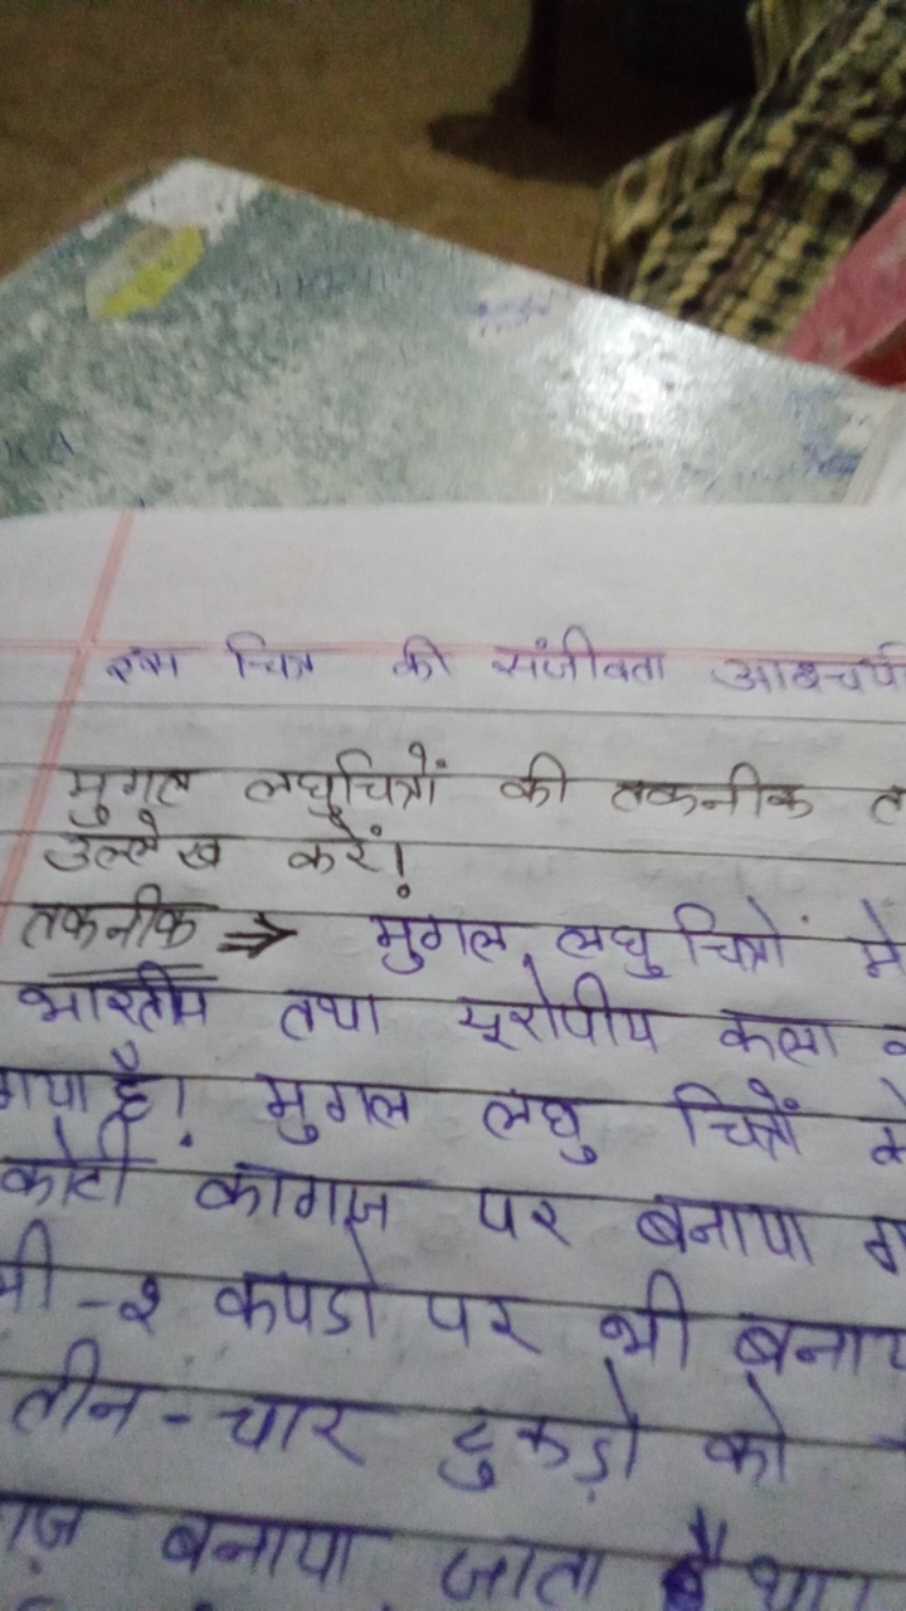 इस चित्र की संजीवता आश्चर्य
मुगल लघुचित्रों की तकनीक त
उल्लेख करें।
तकनीक ⇒ मुगल लघु चित्रों में
भारतीय तथा यूरोपीय कला
गया है। मुगल लघु चित्रों
कोटी कागज पर बनाया ग
भी-२ कपडो पर भी बनाय
तीन-चार टुकड़ो को
गज़ बनाया जाता था।